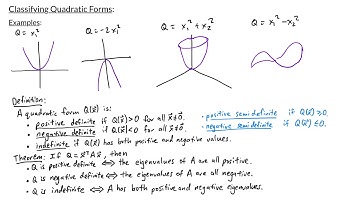 Classifying Quadratic Forms:
Examples:
Q = x₁² Q = -2x₁² Q = x₁² + x₂² Q = x₁² - x₂²
Definition:
A quadratic form Q(x⃗) is:
• positive definite if Q(x⃗) > 0 for all x⃗ ≠ 0⃗. • positive semidefinite if Q(x⃗) ≥ 0.
• negative definite if Q(x⃗) < 0 for all x⃗ ≠ 0⃗. • negative semidefinite if Q(x⃗) ≤ 0.
• indefinite if Q(x⃗) has both positive and negative values.
Theorem: If Q = x⃗ᵀAx⃗, then
• Q is positive definite ⟺ the eigenvalues of A are all positive.
• Q is negative definite ⟺ the eigenvalues of A are all negative.
• Q is indefinite ⟺ A has both positive and negative eigenvalues.